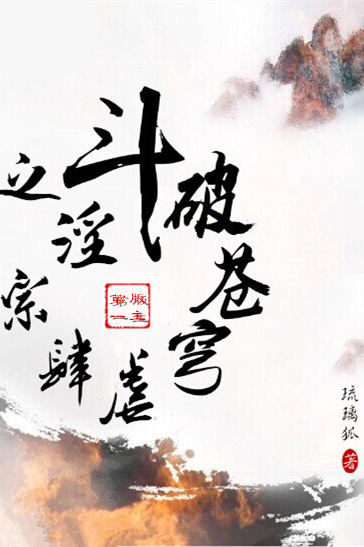 斗破苍穹
之淫宗肆虐
第一版主
琉璃狐
著